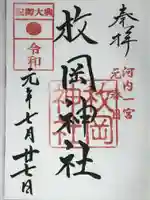 奉拝
河内一宮
元春日
枚岡神社
枚岡神社
令和
元年七月廿七日